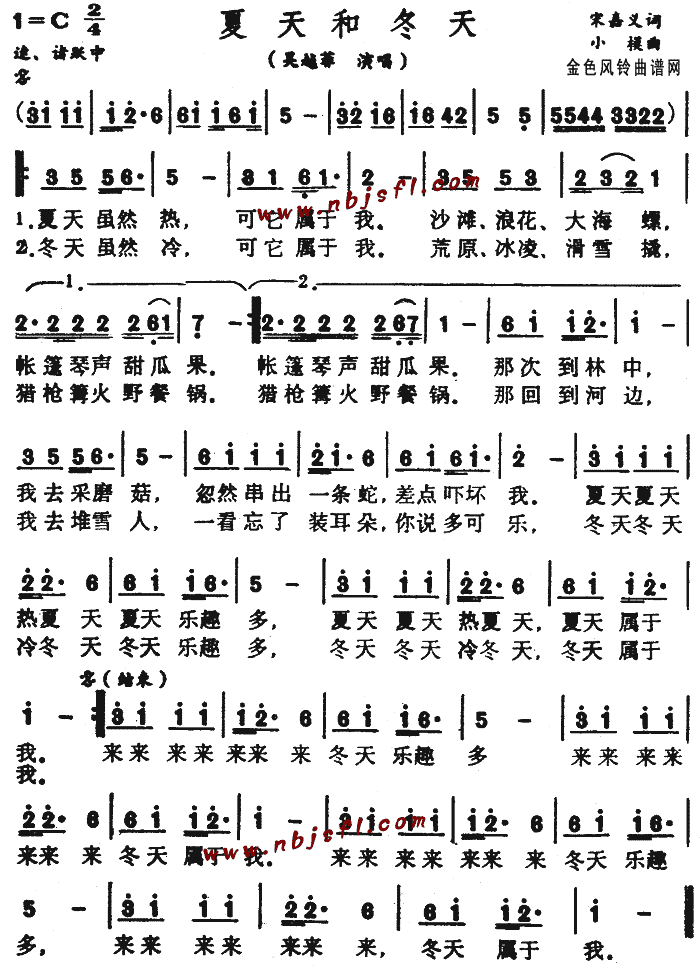 1=C 2/4
夏天和冬天
宋嘉义词
(吴越菲 演唱)
小模曲
金色风铃曲谱网
(31 11 | 12·6 | 61 161 | 5 - | 32 16 | 16 42 | 5 5 | 5544 3322) |
35 56· | 5 - | 31 61· | 2 - | 35 53 | 2321 |
1.夏天虽然热, 可它属于我。 沙滩、浪花、大海螺,
2.冬天虽然冷, 可它属于我。 荒原、冰凌、滑雪撬,
1. 2.
2·222 261 | 7 - :| 2·222 267 | 1 - | 61 12· | 1 - |
帐篷琴声甜瓜果。 帐篷琴声甜瓜果。 那次到林中,
猎枪篝火野餐锅。 猎枪篝火野餐锅。 那回到河边,
35 56· | 5 - | 61 11 | 21·6 | 61 61· | 2 - | 31 11 |
我去采磨菇, 忽然串出一条蛇,差点吓坏我。 夏天夏天
我去堆雪人, 一看忘了装耳朵,你说多可乐, 冬天冬天
22·6 | 61 16· | 5 - | 31 11 | 22·6 | 61 12· |
热夏天夏天乐趣多, 夏天夏天热夏天,夏天属于
冷冬天冬天乐趣多, 冬天冬天冷冬天,冬天属于
(结束)
1 - :| 31 11 | 12·6 | 61 16· | 5 - | 31 11 |
我。 来来来来来来来冬天乐趣多 来来来来
我。
22·6 | 61 12· | 1 - | 31 11 | 12·6 | 61 16· |
来来来冬天属于我。 来来来来来来来冬天乐趣
www.nbjsfl.com
www.nbjsfl.com
5 - | 31 11 | 22·6 | 61 12· | 1 - |
多, 来来来来来来来,冬天属于我。